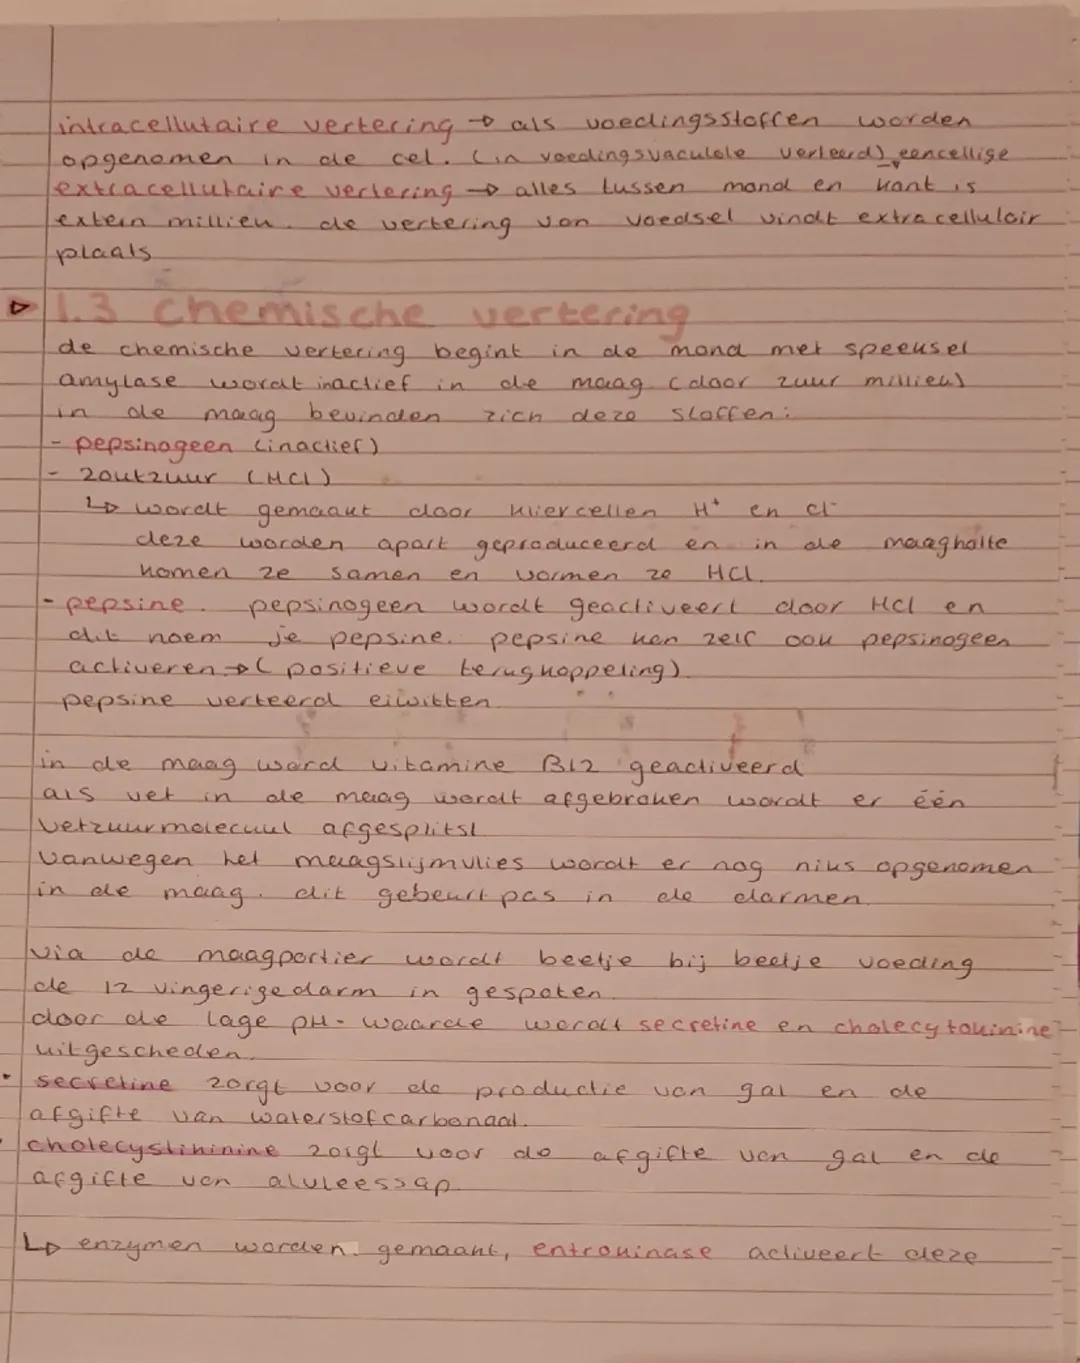 intracellulaire vertering → als voedingsstoffen worden
opgenomen in de cel. (in voedingsvaculole verteerd) eencellige
extracellulaire vertering → alles tussen mond en kont is
extern millieu. de vertering van voedsel vindt extracellulair
plaats
▷ 1.3 chemische vertering
de chemische vertering begint in de mond met speeksel
amylase wordt inactief in de maag (door zuur millieu)
in de maag bevinden zich deze stoffen:
- pepsinogeen (inactief)
- zoutzuur (HCl)
↳ wordt gemaakt door kliercellen H⁺ en cl⁻
deze worden apart geproduceerd en in de maagholte
komen ze samen en vormen ze HCl.
- pepsine. pepsinogeen wordt geactiveert door HCl en
dit noem je pepsine. pepsine kan zelf ook pepsinogeen
activeren → (positieve terugkoppeling).
pepsine verteerd eiwitten.
in de maag word vitamine B12 geactiveerd
als vet in de maag wordt afgebroken wordt er één
vetzuurmolecuul afgesplitst
vanwegen het maagslijmvlies wordt er nog niks opgenomen
in de maag. dit gebeurt pas in de darmen.
via de maagportier wordt beetje bij beetje voeding
de 12 vingerige darm in gespoten.
door de lage pH-waarde wordt secretine en cholecytokinine
uitgescheden.
• secretine zorgt voor de productie van gal en de
afgifte van waterstofcarbonaat.
• cholecystikinine zorgt voor de afgifte van gal en de
afgifte van alvleessap.
↳ enzymen worden gemaakt, entrokinase activeert deze